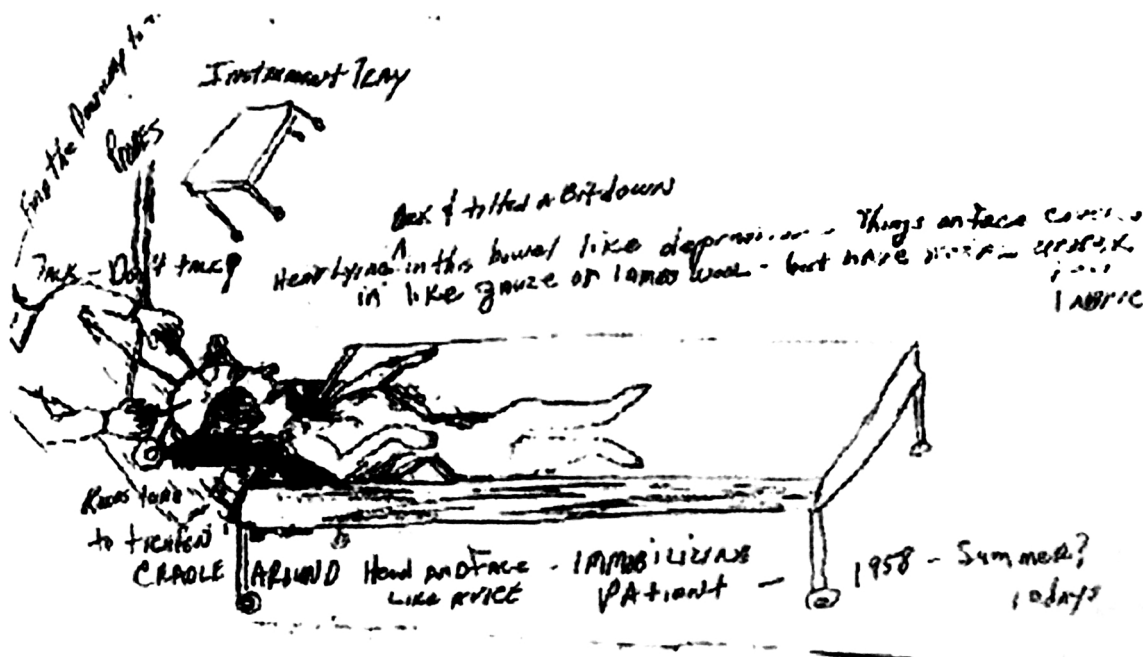 Instrument Tray
Probes
Talk - Don't talk!
Back & tilted a Bit down
Head lying in this bowel like depression Things on face
in like gauze or lambs wool - but have
fabric
Knobs turn
to tighten
CRADLE AROUND Head and Face - IMMOBILIZING
LIKE A VICE PAtiont -
1958 - Summer?
10 days